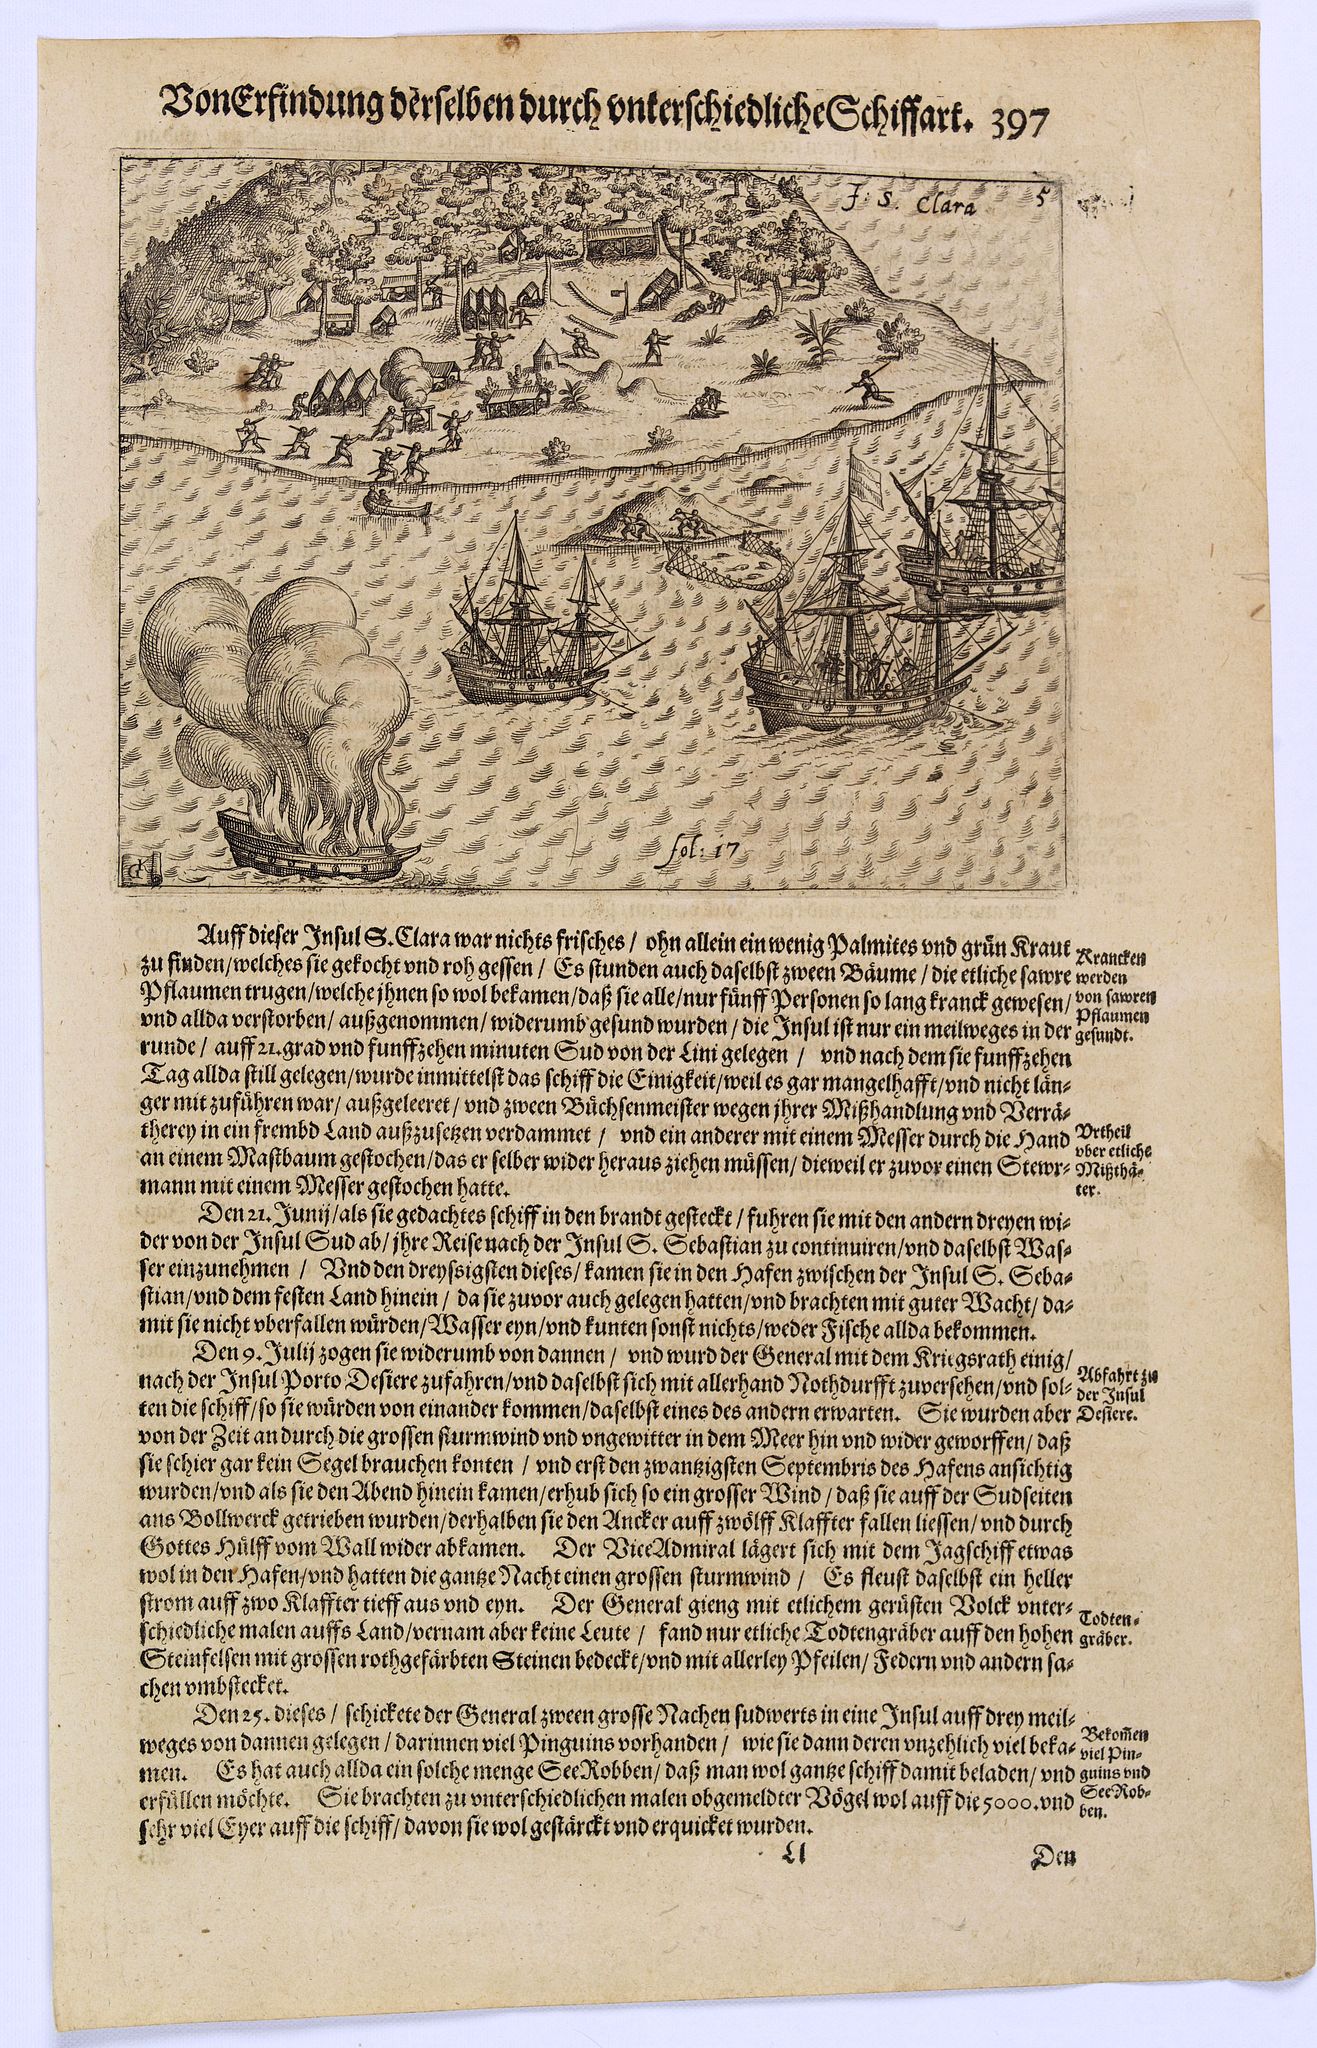 Von Erfindung derselben durch vnterschiedliche Schiffart. 397
J: S. Clara
5
fol: 17
GK
Auff dieser Insul S. Clara war nichts frisches / ohn allein ein wenig Palmites vnd grün Kraut
zu finden/welches sie gekocht vnd roh gessen / Es stunden auch daselbst zween Bäume / die etliche sawre
Pflaumen trugen/welche jhnen so wol bekamen/daß sie alle/nur fünff Personen so lang kranck gewesen/
vnd allda verstorben/ außgenommen/ widerumb gesund wurden / die Insul ist nur ein meilweges in der
runde / auff 21. grad vnd funffzehen minuten Sud von der Lini gelegen / vnd nach dem sie funffzehen
Tag allda still gelegen/wurde inmittelst das schiff die Einigkeit/weil es gar mangelhafft/vnd nicht län-
ger mit zuführen war/ außgeleeret/ vnd zween Büchsenmeister wegen jhrer Mißhandlung vnd Verrä-
therey in ein frembd Land außzusetzen verdammet / vnd ein anderer mit einem Messer durch die Hand
an einem Mastbaum gestochen/das er selber wider heraus ziehen müssen/ dieweil er zuvor einen Stewr-
mann mit einem Messer gestochen hatte.
Krancken
werden
von sawren
Pflaumen
gesundt.
Vrtheil
vber etliche
Mißthä-
ter.
Den 21. Junij/als sie gedachtes schiff in den brandt gesteckt / fuhren sie mit den andern dreyen wi-
der von der Insul Sud ab/ jhre Reise nach der Insul S. Sebastian zu continuiren/vnd daselbst Was-
ser einzunehmen / Vnd den dreyssigsten dieses/ kamen sie in den Hafen zwischen der Insul S. Seba-
stian/vnd dem festen Land hinein / da sie zuvor auch gelegen hatten/vnd brachten mit guter Wacht/ da-
mit sie nicht vberfallen würden/Wasser eyn/vnd kunten sonst nichts/weder Fische allda bekommen.
Den 9. Julij zogen sie widerumb von dannen / vnd wurd der General mit dem Kriegsrath einig/
nach der Insul Porto Desiere zufahren/vnd daselbst sich mit allerhand Nothdurfft zuversehen/vnd sol-
ten die schiff/so sie würden von einander kommen/daselbst eines des andern erwarten. Sie wurden aber
von der Zeit an durch die grossen sturmwind vnd vngewitter in dem Meer hin vnd wider geworffen/ daß
sie schier gar kein Segel brauchen konten / vnd erst den zwantzigsten Septembris des Hafens ansichtig
wurden/vnd als sie den Abend hinein kamen/erhub sich so ein grosser Wind/ daß sie auff der Sudseiten
ans Bollwerck getrieben wurden/derhalben sie den Ancker auff zwölff Klaffter fallen liessen/ vnd durch
Gottes Hülff vom Wall wider abkamen. Der ViceAdmiral lägert sich mit dem Jagschiff etwas
wol in den Hafen/vnd hatten die gantze Nacht einen grossen sturmwind / Es fleust daselbst ein heller
strom auff zwo Klaffter tieff aus vnd eyn. Der General gieng mit etlichem gerüsten Volck vnter-
schiedliche malen auffs Land/vernam aber keine Leute / fand nur etliche Todtengräber auff den hohen
Steinfelsen mit grossen rothgefärbten Steinen bedeckt/vnd mit allerley Pfeilen/ Federn vnd andern sa-
chen vmbstecket.
Abfahrt zu
der Insul
Desiere.
Todten-
gräber.
Den 25. dieses / schickete der General zween grosse Nachen sudwerts in eine Insul auff drey meil-
weges von dannen gelegen / darinnen viel Pinguins vorhanden / wie sie dann deren vnzehlich viel beka-
men. Es hat auch allda ein solche menge SeeRobben/ daß man wol gantze schiff damit beladen/ vnd
erfüllen möchte. Sie brachten zu vnterschiedlichen malen obgemeldter Vögel wol auff die 5000. vnd
sehr viel Eyer auff die schiff/ davon sie wol gestärckt vnd erquicket wurden.
Bekom̃en
viel Pin-
guins vnd
SeeRob-
ben.
Ll
Den